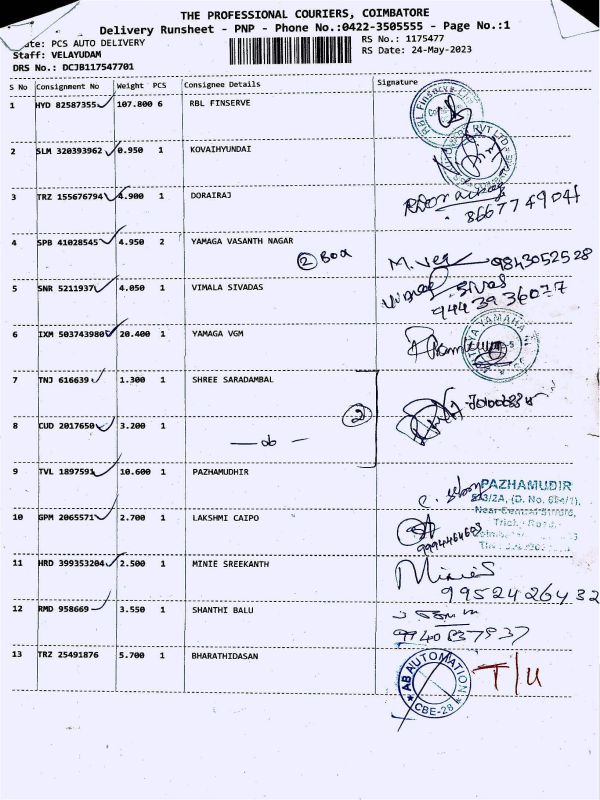 THE PROFESSIONAL COURIERS, COIMBATORE
Delivery Runsheet - PNP - Phone No.:0422-3505555 - Page No.:1
Route: PCS AUTO DELIVERY RS No.: 1175477
Staff: VELAYUDAM RS Date: 24-May-2023
DRS No.: DCJB117547701
S No Consignment No Weight PCS Consignee Details Signature
1 HYD 82587355 107.800 6 RBL FINSERVE
RBL Finserve
2 SLM 320393962 0.950 1 KOVAIHYUNDAI
PVT LTD
3 TRZ 155676794 4.900 1 DORAIRAJ
8667749041
4 SPB 41028545 4.950 2 YAMAGA VASANTH NAGAR
2 Box
9843052528
5 SNR 5211937 4.050 1 VIMALA SIVADAS
9443936017
6 IXM 503743980 20.400 1 YAMAGA VGM
YAMAHA
7 TNJ 616639 1.300 1 SHREE SARADAMBAL
2
8 CUD 2017650 3.200 1
— do —
9 TVL 1897591 10.600 1 PAZHAMUDHIR
PAZHAMUDIR
10 GPM 2065571 2.700 1 LAKSHMI CAIPO
11 HRD 399353204 2.500 1 MINIE SREEKANTH
Minie S
9952426432
12 RMD 958669 3.550 1 SHANTHI BALU
9940837937
13 TRZ 25491876 5.700 1 BHARATHIDASAN
AB AUTOMATION
CBE-28
T/U